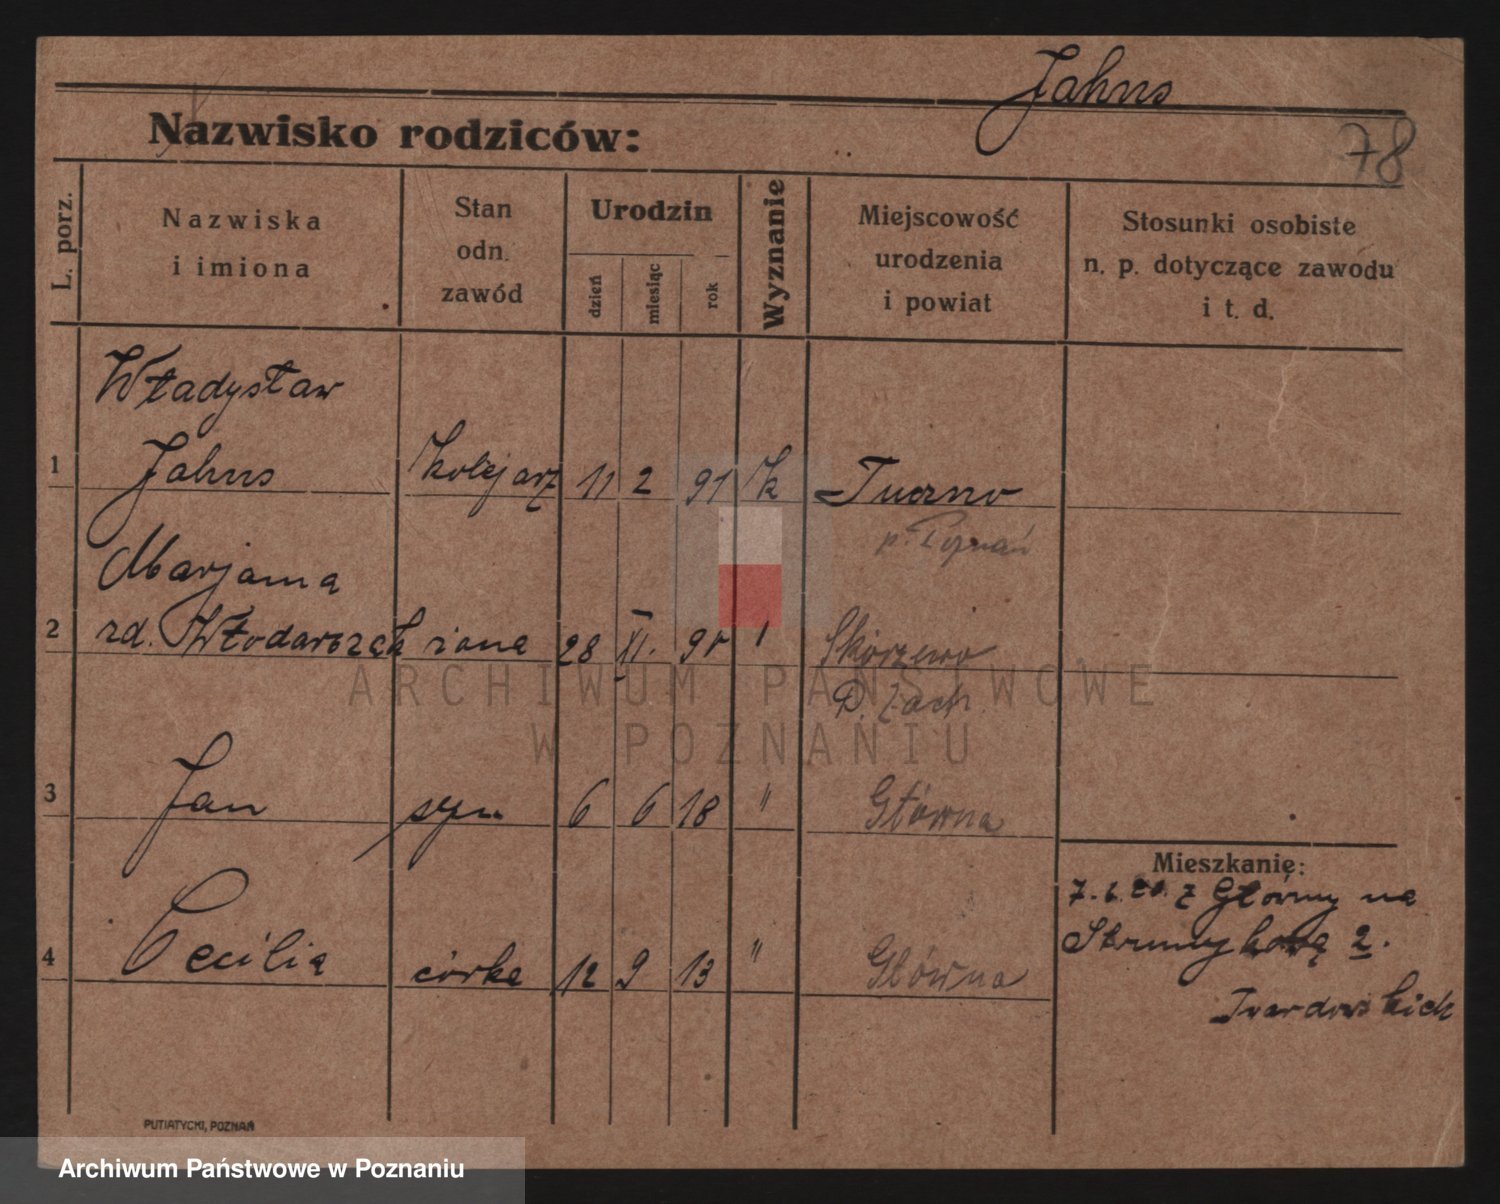 Jahns
Nazwisko rodziców:
78
L. porz.
Nazwiska
i imiona
Stan
odn.
zawód
Urodzin
dzień
miesiąc
rok
Wyznanie
Miejscowość
urodzenia
i powiat
Stosunki osobiste
n. p. dotyczące zawodu
i t. d.
Władysław
1 Jahns kolejarz 11 2 91 k Tuczno
p.
Marjanna
2 zd. Włodarczak żona 28 XI. 91 " Skórzewo
P. Zach.
3 Jan syn 6 6 18 " Główna
Mieszkanie:
7. 2. 20. z Główny na
4 Cecilia córka 12 9 13 " Główna
Strumykową 2.
Twardowskich
PUTIATYCKI, POZNAŃ
ARCHIWUM PAŃSTWOWE
W POZNANIU
Archiwum Państwowe w Poznaniu